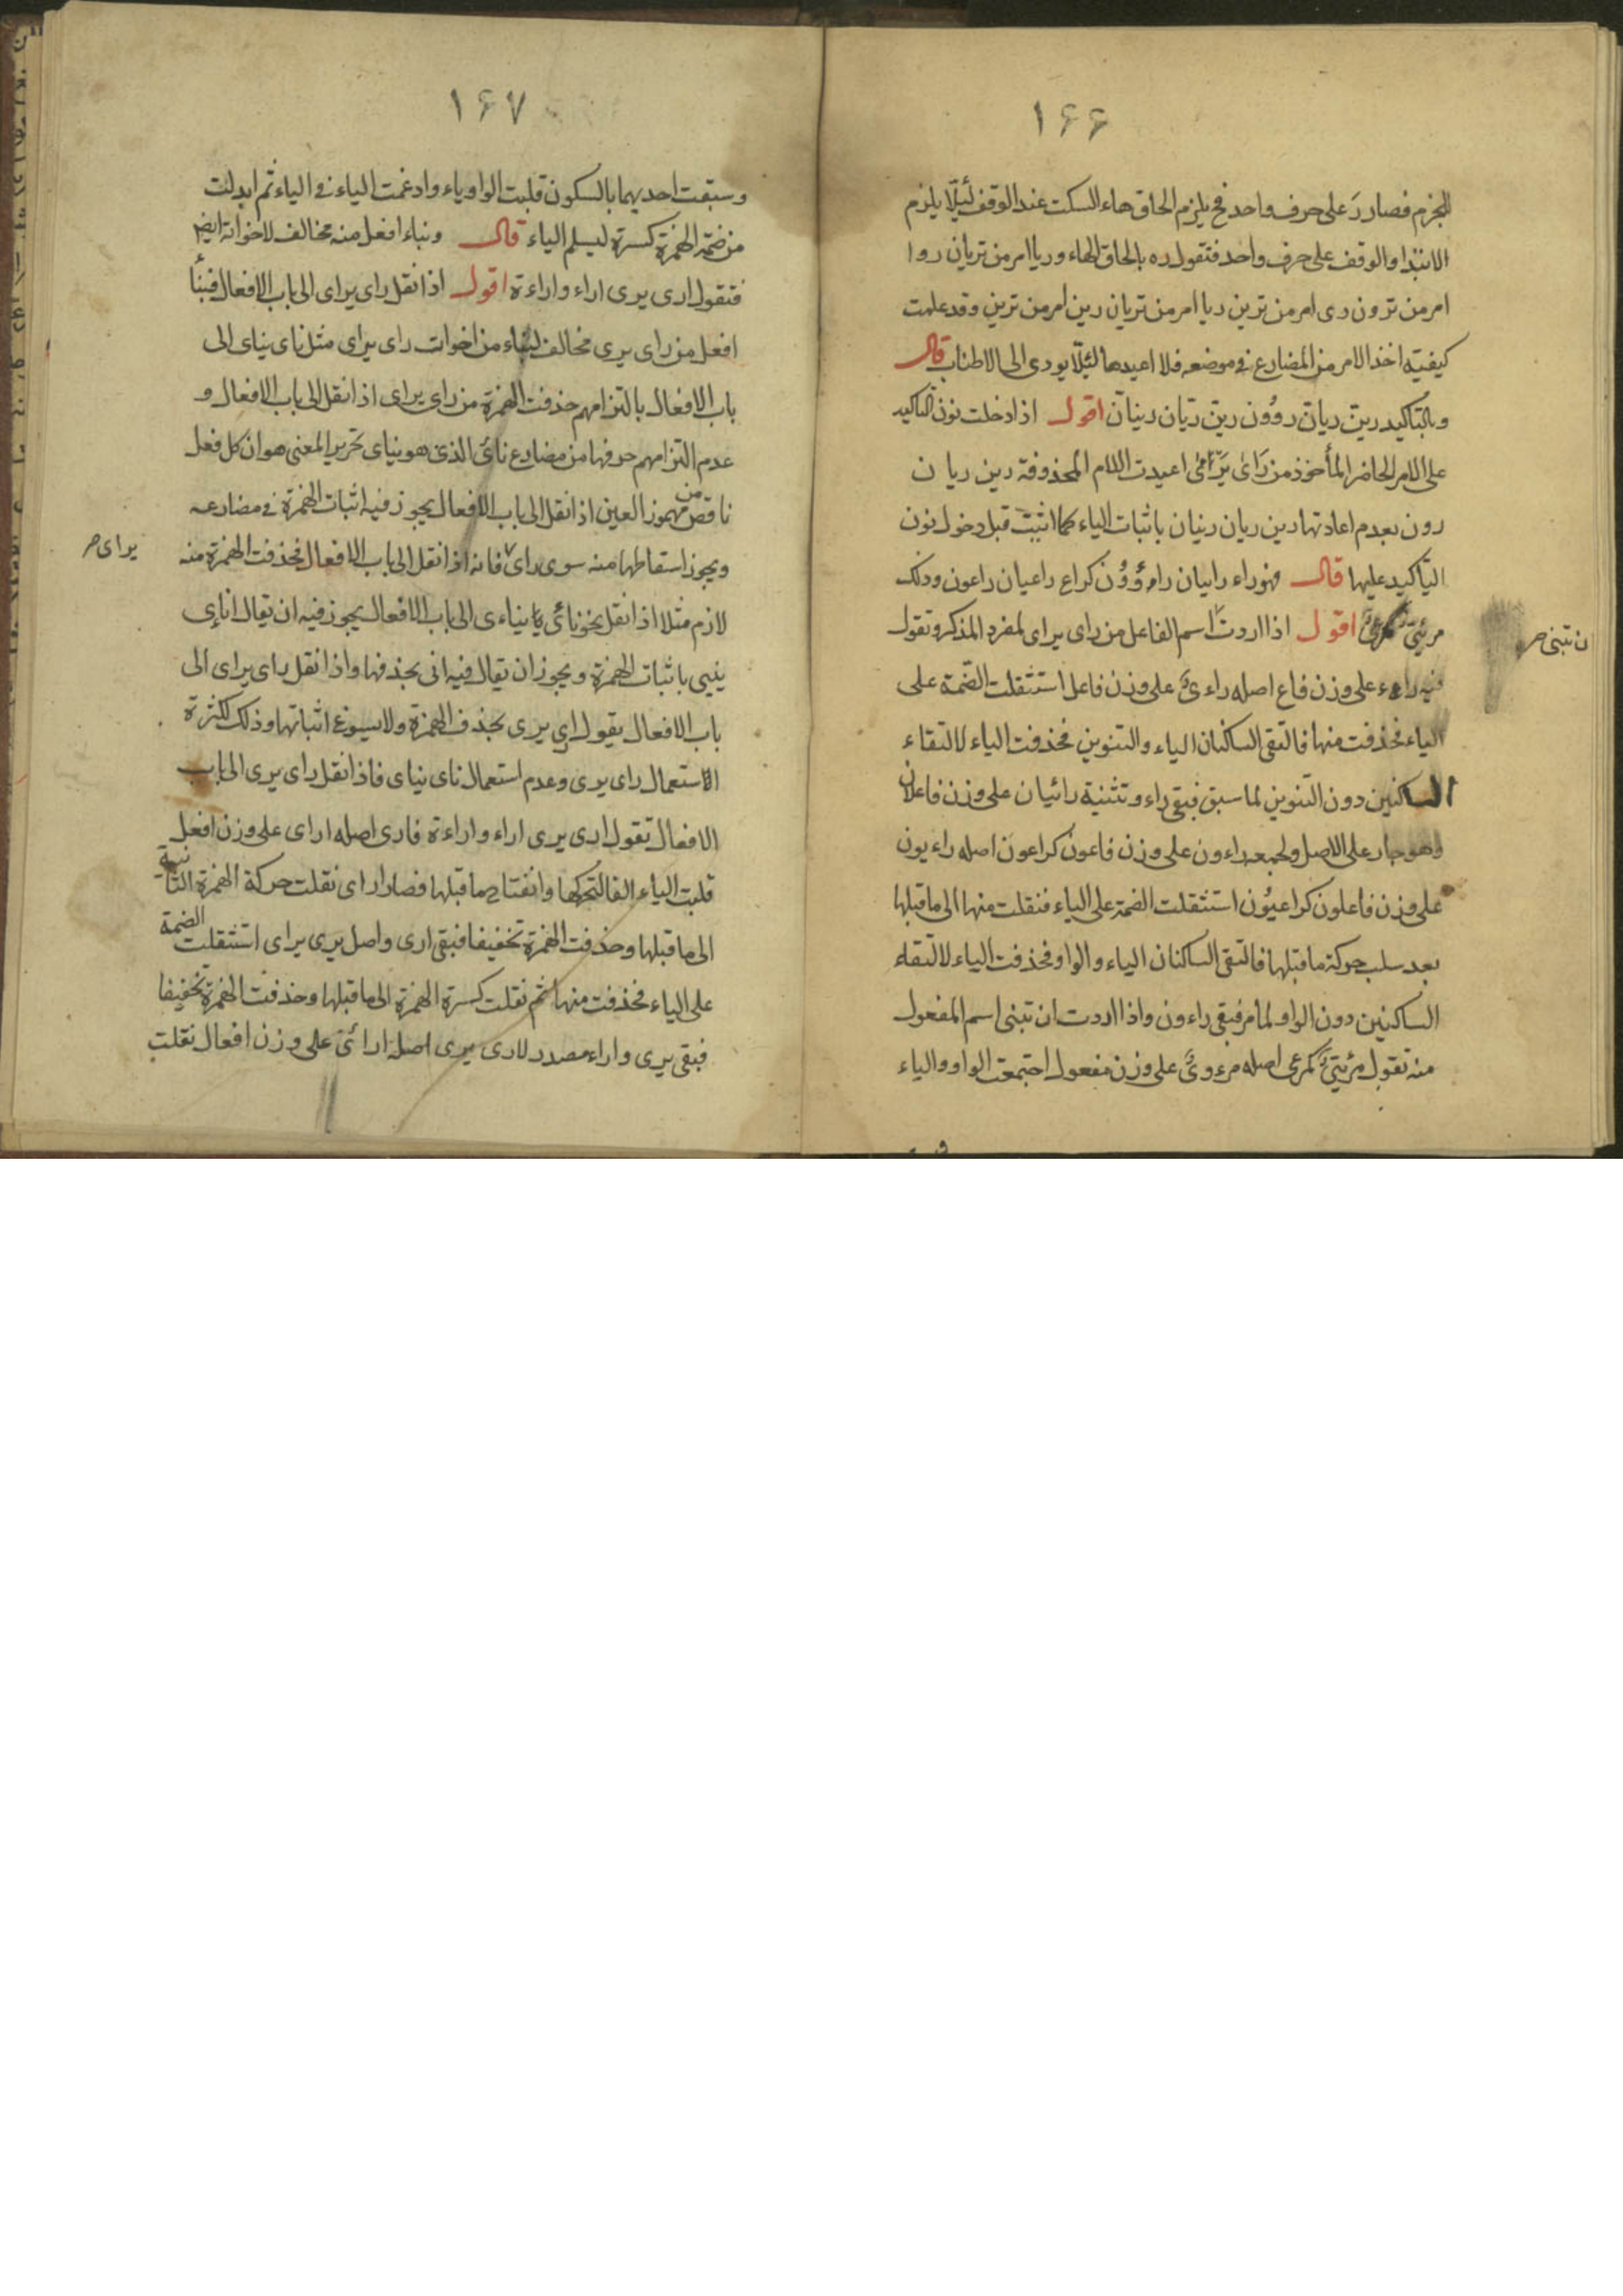 ۱۶۶
للجزم فصار رَ على حرف واحد فح يلزم الحاق هاء السكت عند الوقف لئيلّا يلزم
الابتدا والوقف على حرف واحد فتقول ره بالحاق الهاء وريا امر من تريان روا
امر من ترون رى امر من ترين ريا امر من تريان رين امر من ترين وقد علمت
كيفيّة اخذ الامر من المضارع فى موضعه فلا اعيدها لئيلّا يودى الى الاطناب قال
وبالتاكيد رينّ ريانّ روُونّ رينّ ريّان رينانّ اقول اذا دخلت نون التاكيد
على الامر الحاضر المأخوذ من رَاى يَرَاى اعيدت اللام المحذوفة رين ريا ن
رون بعدم اعادتها رين ريان رينان باثبات الياء كما اثبتت قبل دخول نون
التأكيد عليها قال فهو راء راييان راءُوُن كراع راعيان راعون وذلك
مرئىّ كمرعىّ اقول اذا اردت اسم الفاعل من راى يراى لمفرد المذكر وتقول
ان تبنى صح
فيه راء على وزن فاع اصله راءىٌ على وزن فاعل استثقلت الضّمة على
الياء فحذفت منها فالتقى الساكنان الياء والتنوين فحذفت الياء لالتقاء
الساكنين دون التنوين لما سبق فبقى راء وتثنية رائيان على وزن فاعلان
وهو جار على الاصل ولجمعه راءون على وزن فاعون كراعون اصله راءيون
على وزن فاعلون كراعيُون استثقلت الضمة على الياء فنقلت منها الى ماقبلها
بعد سلب حركة ماقبلها فالتقى الساكنان الياء والواو فحذفت الياء لالتقاء
الساكنين دون الواو لما مر فبقى راءون واذا اردت ان تبنى اسم المفعول
منه تقول مرئىّ كمرعى اصله مرءوىٌ على وزن مفعول اجتمعت الواو والياء
۱۶۷
وسبقت احديهما بالسكون قلبت الواو ياء وادغمت الياء فى الياء ثم ابدلت
من ضمّة الهمزة كسرة ليسلم الياء قال وبناء افعل منه مخالف لاخواته ايض
فتقول ارى يرى اراء واراءة اقول اذا نقل راى يراى الى باب الافعال فبنأ
افعل من راى يرى مخالف لبناء من اخوات راى يراى مثل ناى يناى الى
باب الافعال بالتزامهم حذفت الهمزة من راى يراى اذا نقل الى باب الافعال و
عدم التزامهم حذفها من مضارع نائ الذى هو يناى تحرير المعنى هو ان كل فعل
ناقص من مهموز العين اذا نقل الى باب الافعال يجوز فيه اثبات الهمزة فى مضارعه
ويجوز اسقاطها منه سوى راى فانه اذا نقل الى باب الافعال فحذفت الهمزة منه
يراى صح
لازم مثلا اذا نقل نحو نائى يناءى الى باب الافعال يجوز فيه ان يقال انايى
ينيى باثبات الهمزة ويجوز ان يقال فيه انى بحذفها واذا نقل راى يراى الى
باب الافعال يقول ارى يرى بحذف الهمزة ولا يسوغ اثباتها وذلك لكثرة
الاستعمال راى يرى وعدم استعمال ناى يناى فاذا نقل راى يرى الى باب
الافعال تقول ارى يرى اراء واراءة فارى اصله اراى على وزن افعل
قلبت الياء الفا لتحركها وانفتاح ماقبلها فصار اراى نقلت حركة الهمزة الثانية
الى ماقبلها وحذفت الهمزة تخفيفا فبقى ارى واصل يرى يراى استثقلت الضمة
على الياء فحذفت منها ثم نقلت كسرة الهمزة الى ماقبلها وحذفت الهمزة تخفيفا
فبقى يرى واراء مصدر لارى يرى اصله ارائى على وزن افعال نقلت